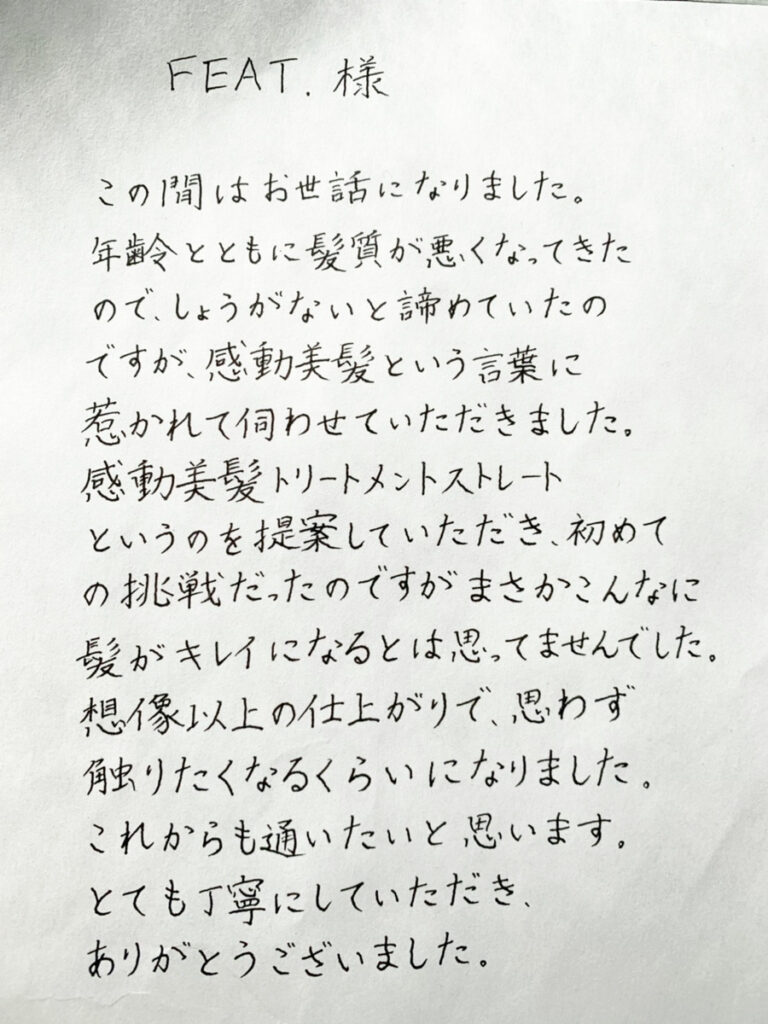 FEAT. 様
この間はお世話になりました。
年齢とともに髪質が悪くなってきた
ので、しょうがないと諦めていたの
ですが、感動美髪という言葉に
惹かれて伺わせていただきました。
感動美髪トリートメントストレート
というのを提案していただき、初めて
の挑戦だったのですがまさかこんなに
髪がキレイになるとは思ってませんでした。
想像以上の仕上がりで、思わず
触りたくなるくらいになりました。
これからも通いたいと思います。
とても丁寧にしていただき、
ありがとうございました。